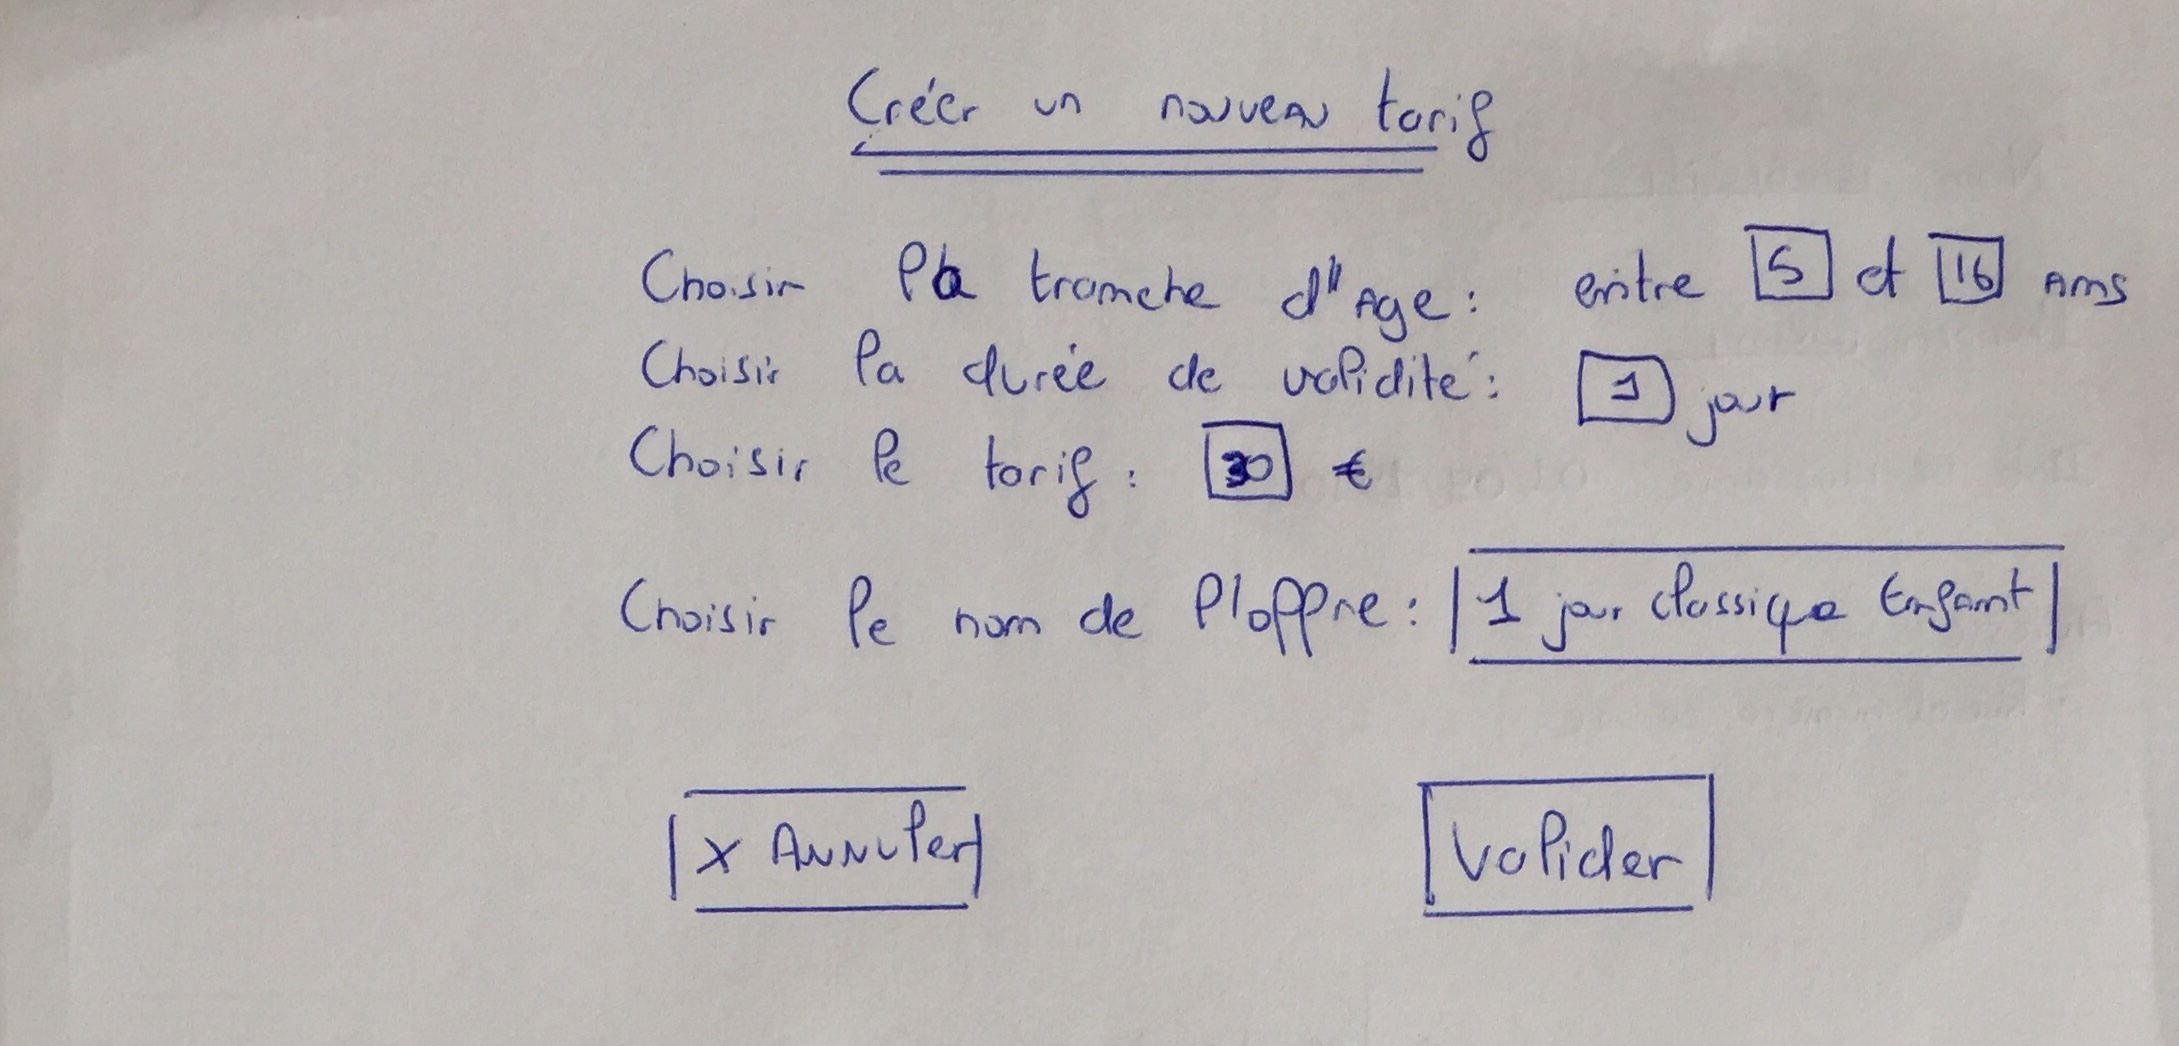 Créer un nouveau tarif
Choisir la tranche d'Age : entre 5 et 16 Ans
Choisir la durée de validité : 1 jour
Choisir le tarif : 30 €
Choisir le nom de l'offre : 1 jour classique Enfant
X Annuler
Valider